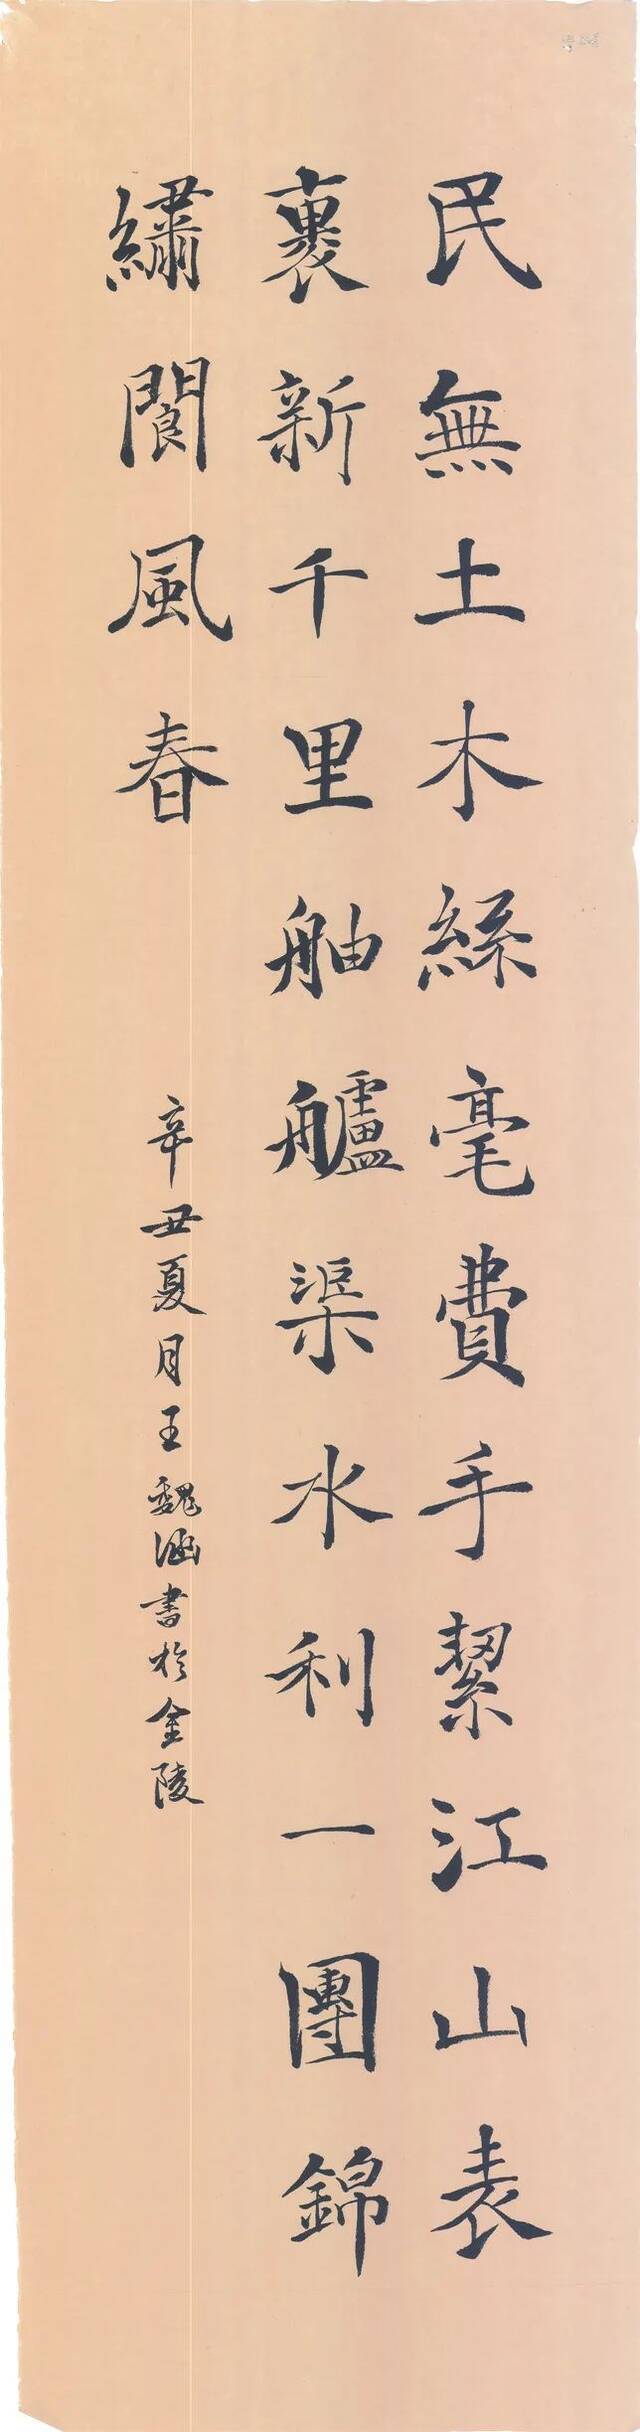 民無土木絲毫費手絜江山表
裏新千里舳艫渠水利一團錦
繡閬風春
辛丑夏月王魏涵書於金陵